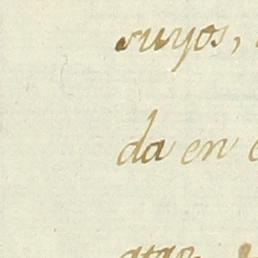 suyos,
da en